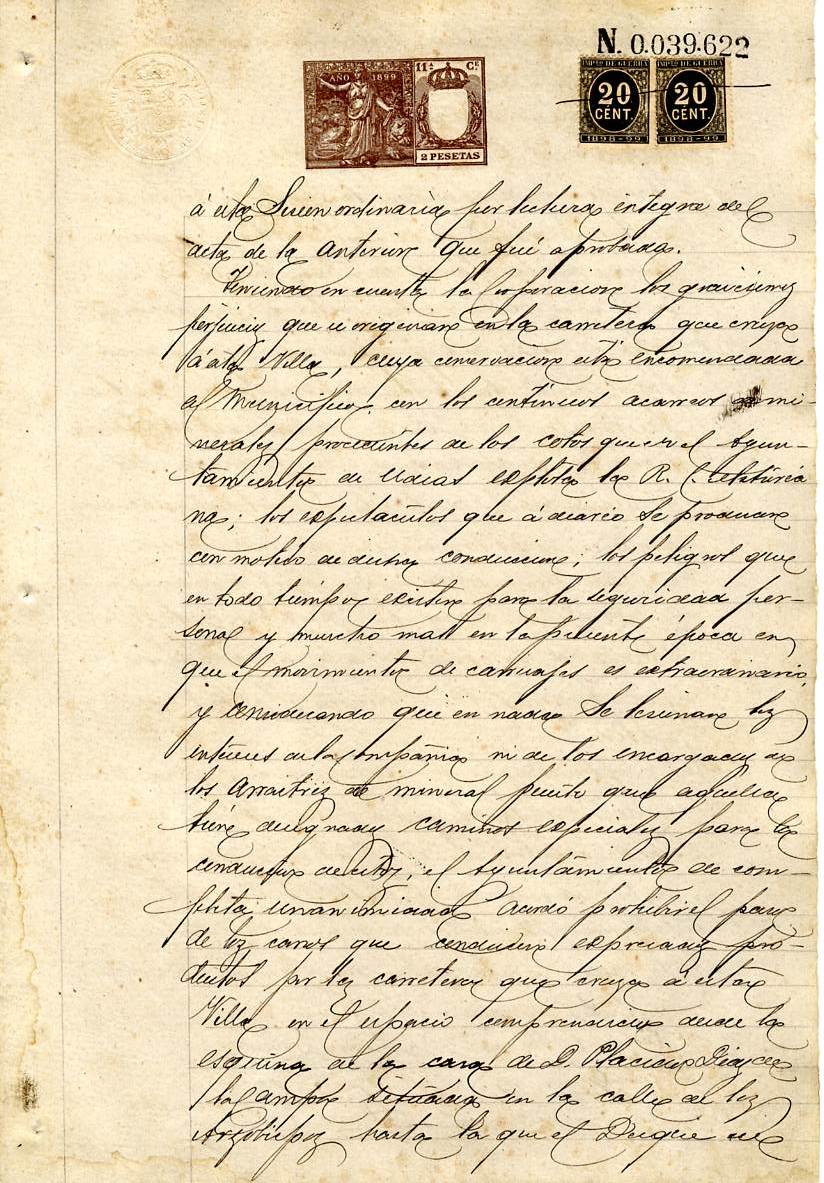 N. 0.039.622
AÑO 1899
11ª Cᴱ
2 PESETAS
IMPTO DE GUERRA
20
CENT.
1898-99
IMPTO DE GUERRA
20
CENT.
1898-99
á esta Sesion ordinaria por lectura integra del
acta de la anterior que fué aprobada.
Teniendo en cuenta la Corporacion los gravisimos
perjuicios que se originan en la carretera que cruza
á esta Villa, cuya conservacion está encomendada
al Municipio, con los continuos acarreos de mi-
nerales procedentes de los cotos que en el Ayun-
tamiento de Udias explota la R. C. Asturia
na; los espectaculos que á diario se producen
con motivo de dicha conduccion; los peligros que
en todo tiempo existen para la seguridad per-
sonal y mucho mas en la presente época en
que el movimiento de carruajes es extraordinario,
y considerando que en nada se lesionan los
intereses de la Compañia ni de los encargados de
los arrastres de mineral puesto que aquella
tiene designados caminos especiales para la
conduccion de estos, el Ayuntamiento de com-
pleta unanimidad acordó prohibir el paso
de los carros que conducen expresados pro-
ductos por las carreteras que cruza á esta
Villa en el espacio comprendido desde la
esquina de la casa de D. Placido Diaz de
la Campa situada en la calle de los
Arzobispos hasta la que el Duque de